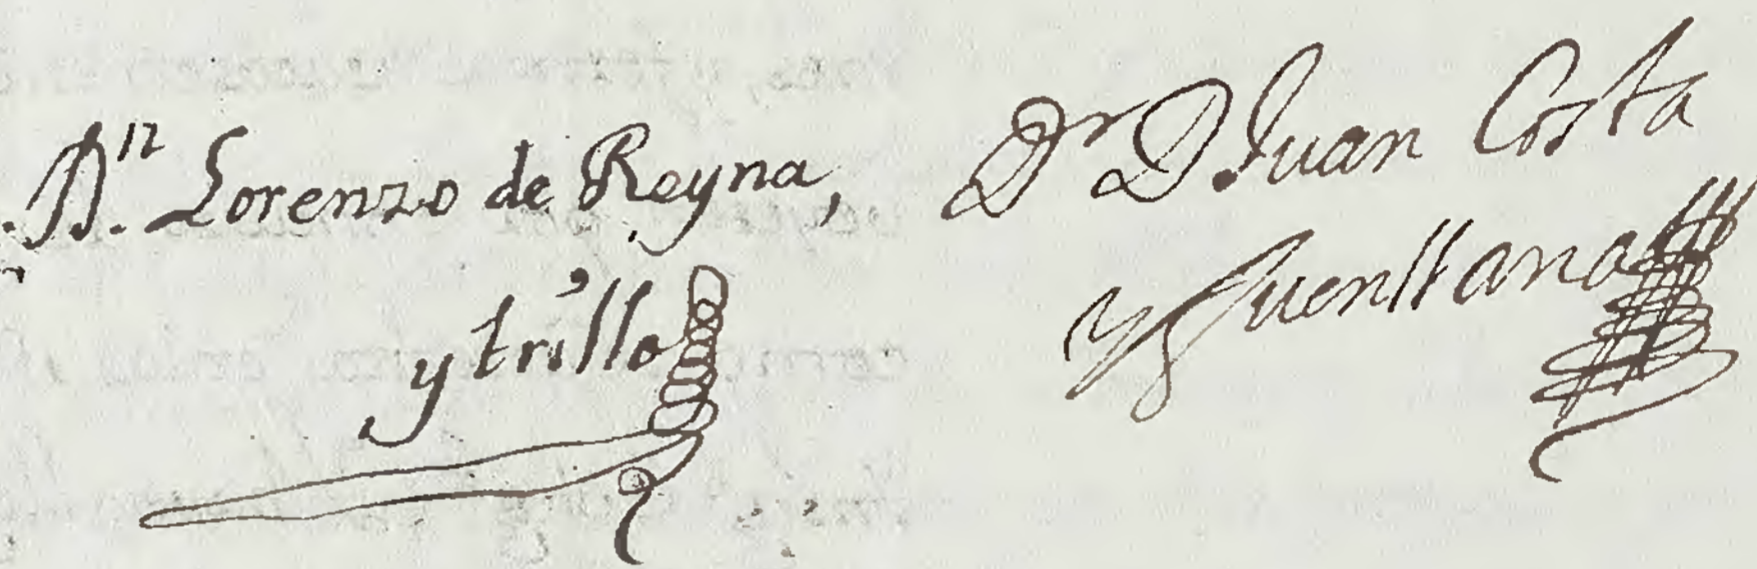 Dn. Lorenzo de Reyna,
y trillo
Dr D. Juan Costa
y